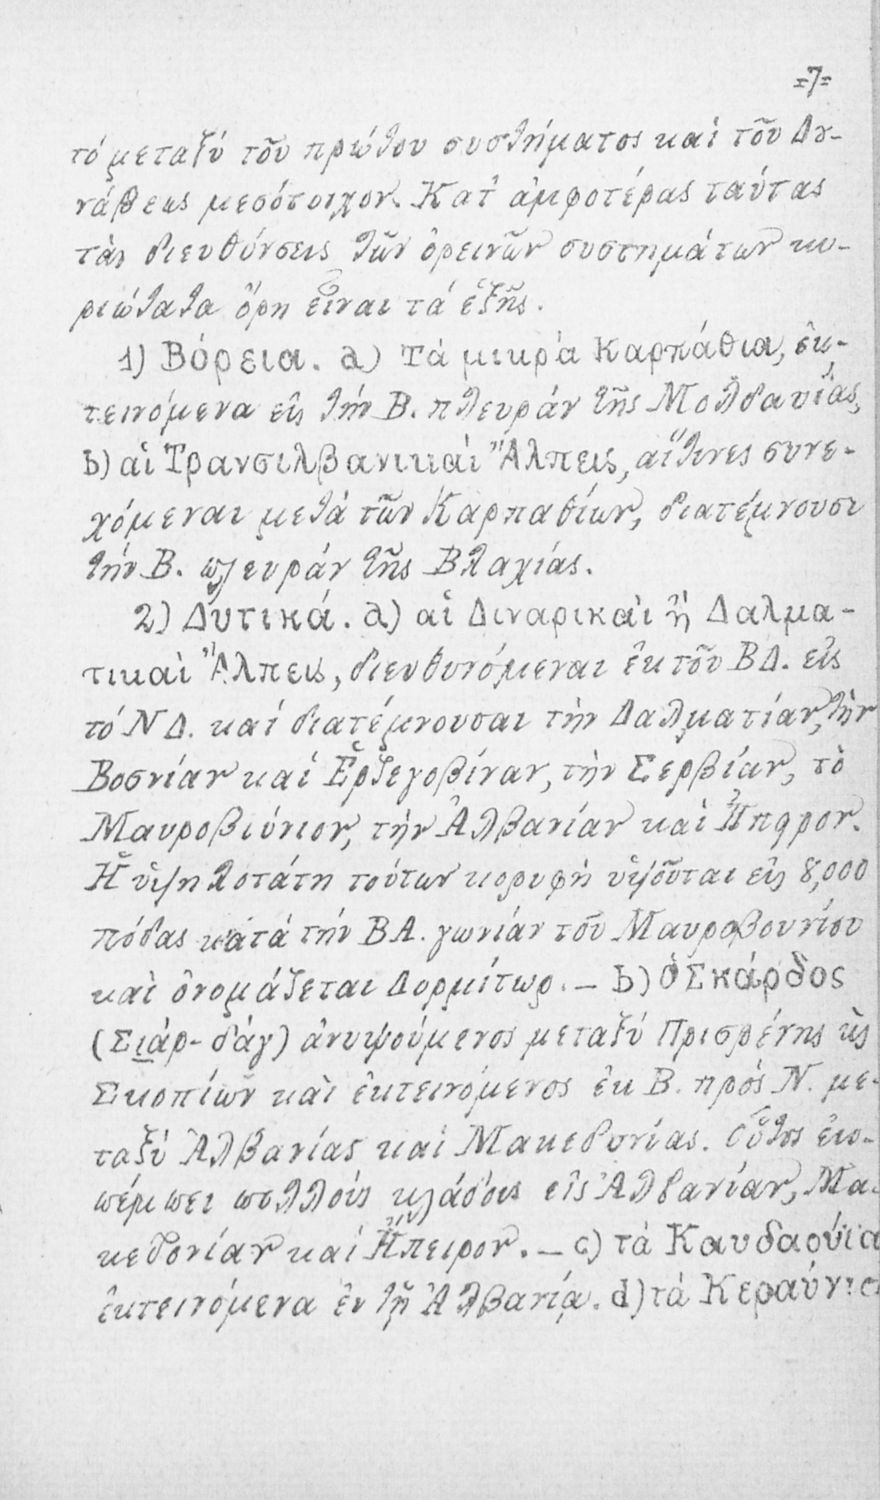 =7=
τό μεταξύ τοῦ πρώτου συστήματος καί τοῦ Δυ-
νάβεως μεσότοιχον. Κατ' ἀμφοτέρας ταύτας
τάς διευθύνσεις τῶν ὀρεινῶν συστημάτων κυ-
ριώτατα ὄρη εἶναι τά ἑξῆς.
1) Βόρεια. a) Τά μικρά Καρπάθια, ἐκ-
τεινόμενα εἰς τήν Β. πλευράν τῆς Μολδαυίας,
b) αἱ Τρανσιλβανικαί Ἄλπεις, αἵτινες συνε-
χόμεναι μετά τῶν Καρπαθίων, διατέμνουσι
τήν Β. πλευράν τῆς Βλαχίας.
2) Δυτικά. a) αἱ Διναρικαὶ ἤ Δαλμα-
τικαὶ Ἄλπεις, διευθυνόμεναι ἐκ τοῦ ΒΔ. εἰς
τό ΝΔ. καί διατέμνουσαι τήν Δαλματίαν, τήν
Βοσνίαν καί Ἐρζεγοβίναν, τήν Σερβίαν, τὸ
Μαυροβιύνιον, τήν Ἀλβανίαν καὶ Ἤπηρον.
Ἡ ὑψηλοτάτη τούτων κορυφή ὑψοῦται εἰς 8,000
πόδας κατά τήν ΒΑ. γωνίαν τοῦ Μαυροβουνίου
καὶ ὀνομάζεται Δορμίτωρ. — b) ὁ Σκάρδος
(Σιάρ-δάγ) ἀνυψούμενος μεταξύ Πρισρένης κὶ
Σκοπίων καὶ ἐκτεινόμενος ἐκ Β. πρός Ν. με-
ταξύ Ἀλβανίας καί Μακεδονίας. Οὗτος ἐκ-
πέμπει πολλούς κλάδους εἰς Ἀλβανίαν, Μα-
κεδονίαν καί Ἤπειρον. — c) τά Κανδαούϊα
ἐκτεινόμενα ἐν τῇ Ἀλβανίᾳ. d) τά Κεραύνια